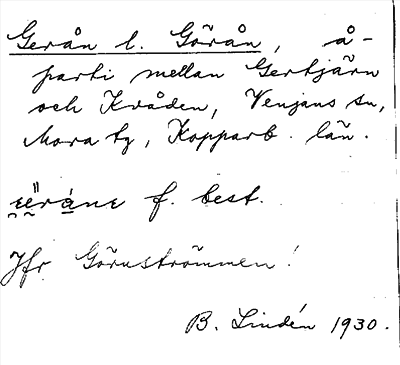 Gerån l. Görån, å-
parti mellan Gertjärn
och Kråden, Venjans sn,
Mora tg, Kopparb. län.
f. best.
Jfr Görnströmmen!
B. Lindén 1930.